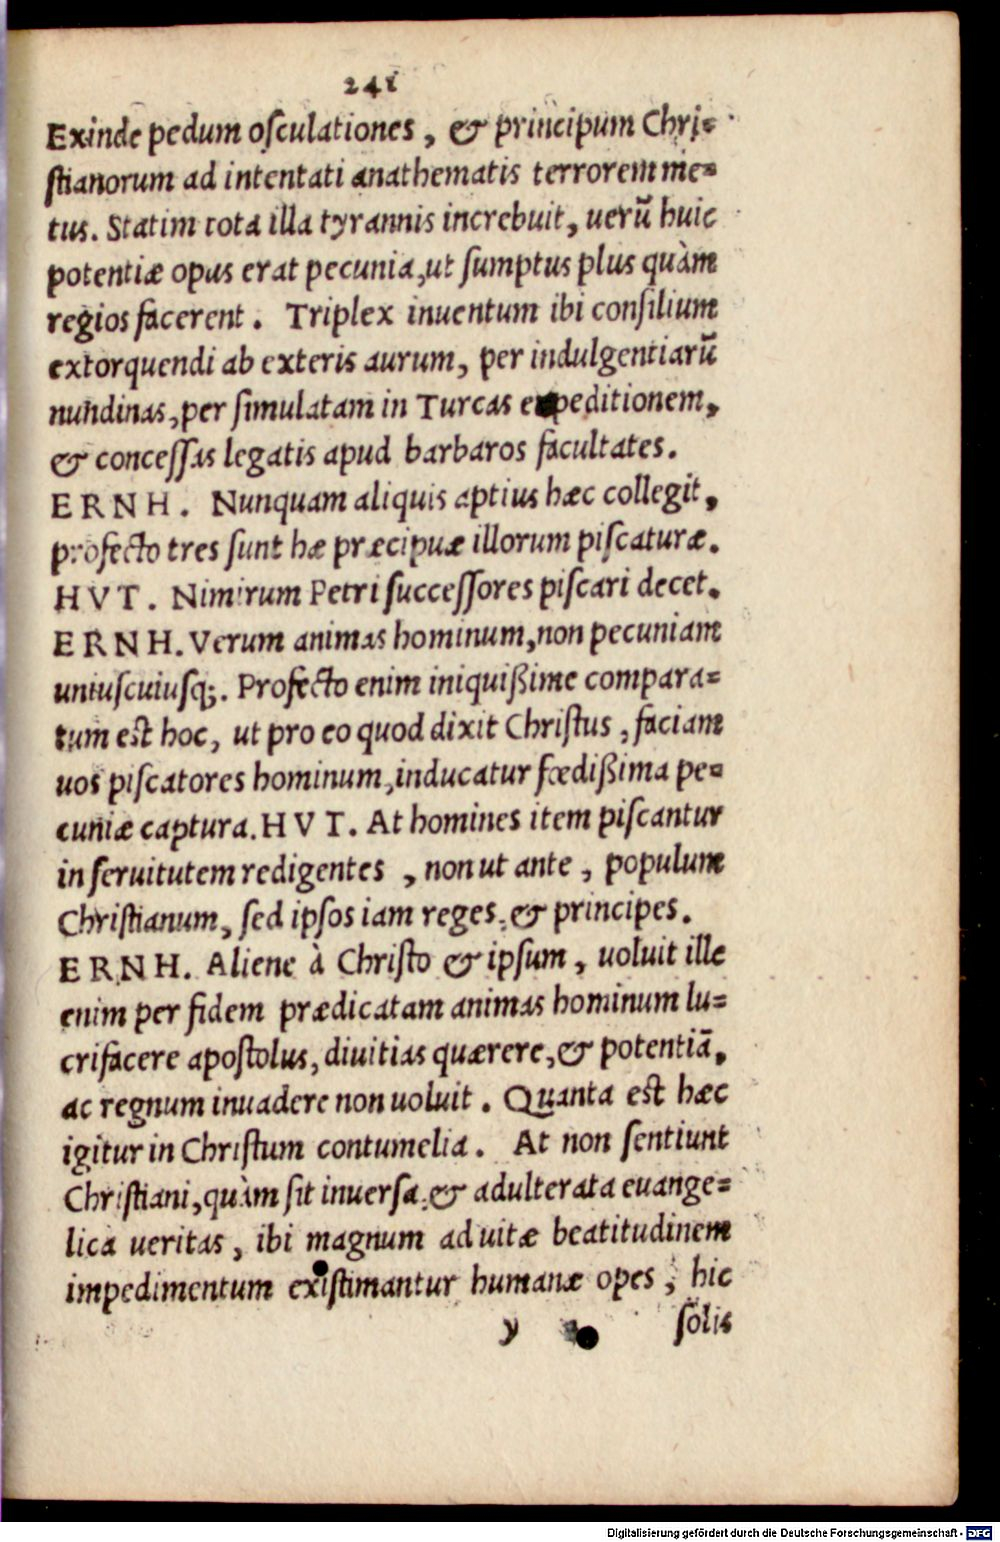 241
Exinde pedum osculationes, & principum Chri-
stianorum ad intentati anathematis terrorem me-
tus. Statim tota illa tyrannis increbuit, uerũ huic
potentiæ opus erat pecunia, ut sumptus plus quàm
regios facerent. Triplex inuentum ibi consilium
extorquendi ab exteris aurum, per indulgentiarũ
nundinas, per simulatam in Turcas expeditionem,
& concessas legatis apud barbaros facultates.
ERNH. Nunquam aliquis aptius hæc collegit,
profecto tres sunt hæ præcipuæ illorum piscaturæ.
HVT. Nimirum Petri successores piscari decet.
ERNH. Verum animas hominum, non pecuniam
uniuscuiusq;. Profecto enim iniquißime compara-
tum est hoc, ut pro eo quod dixit Christus, faciam
uos piscatores hominum, inducatur fœdißima pe-
cuniæ captura. HVT. At homines item piscantur
in seruitutem redigentes, non ut ante, populum
Christianum, sed ipsos iam reges, & principes.
ERNH. Aliene à Christo & ipsum, uoluit ille
enim per fidem prædicatam animas hominum lu-
crifacere apostolus, diuitias quærere, & potentiã,
ac regnum inuadere non uoluit. Quanta est hæc
igitur in Christum contumelia. At non sentiunt
Christiani, quàm sit inuersa, & adulterata euange-
lica ueritas, ibi magnum ad uitæ beatitudinem
impedimentum existimantur humanæ opes, hic
y solis
Digitalisierung gefördert durch die Deutsche Forschungsgemeinschaft - DFG